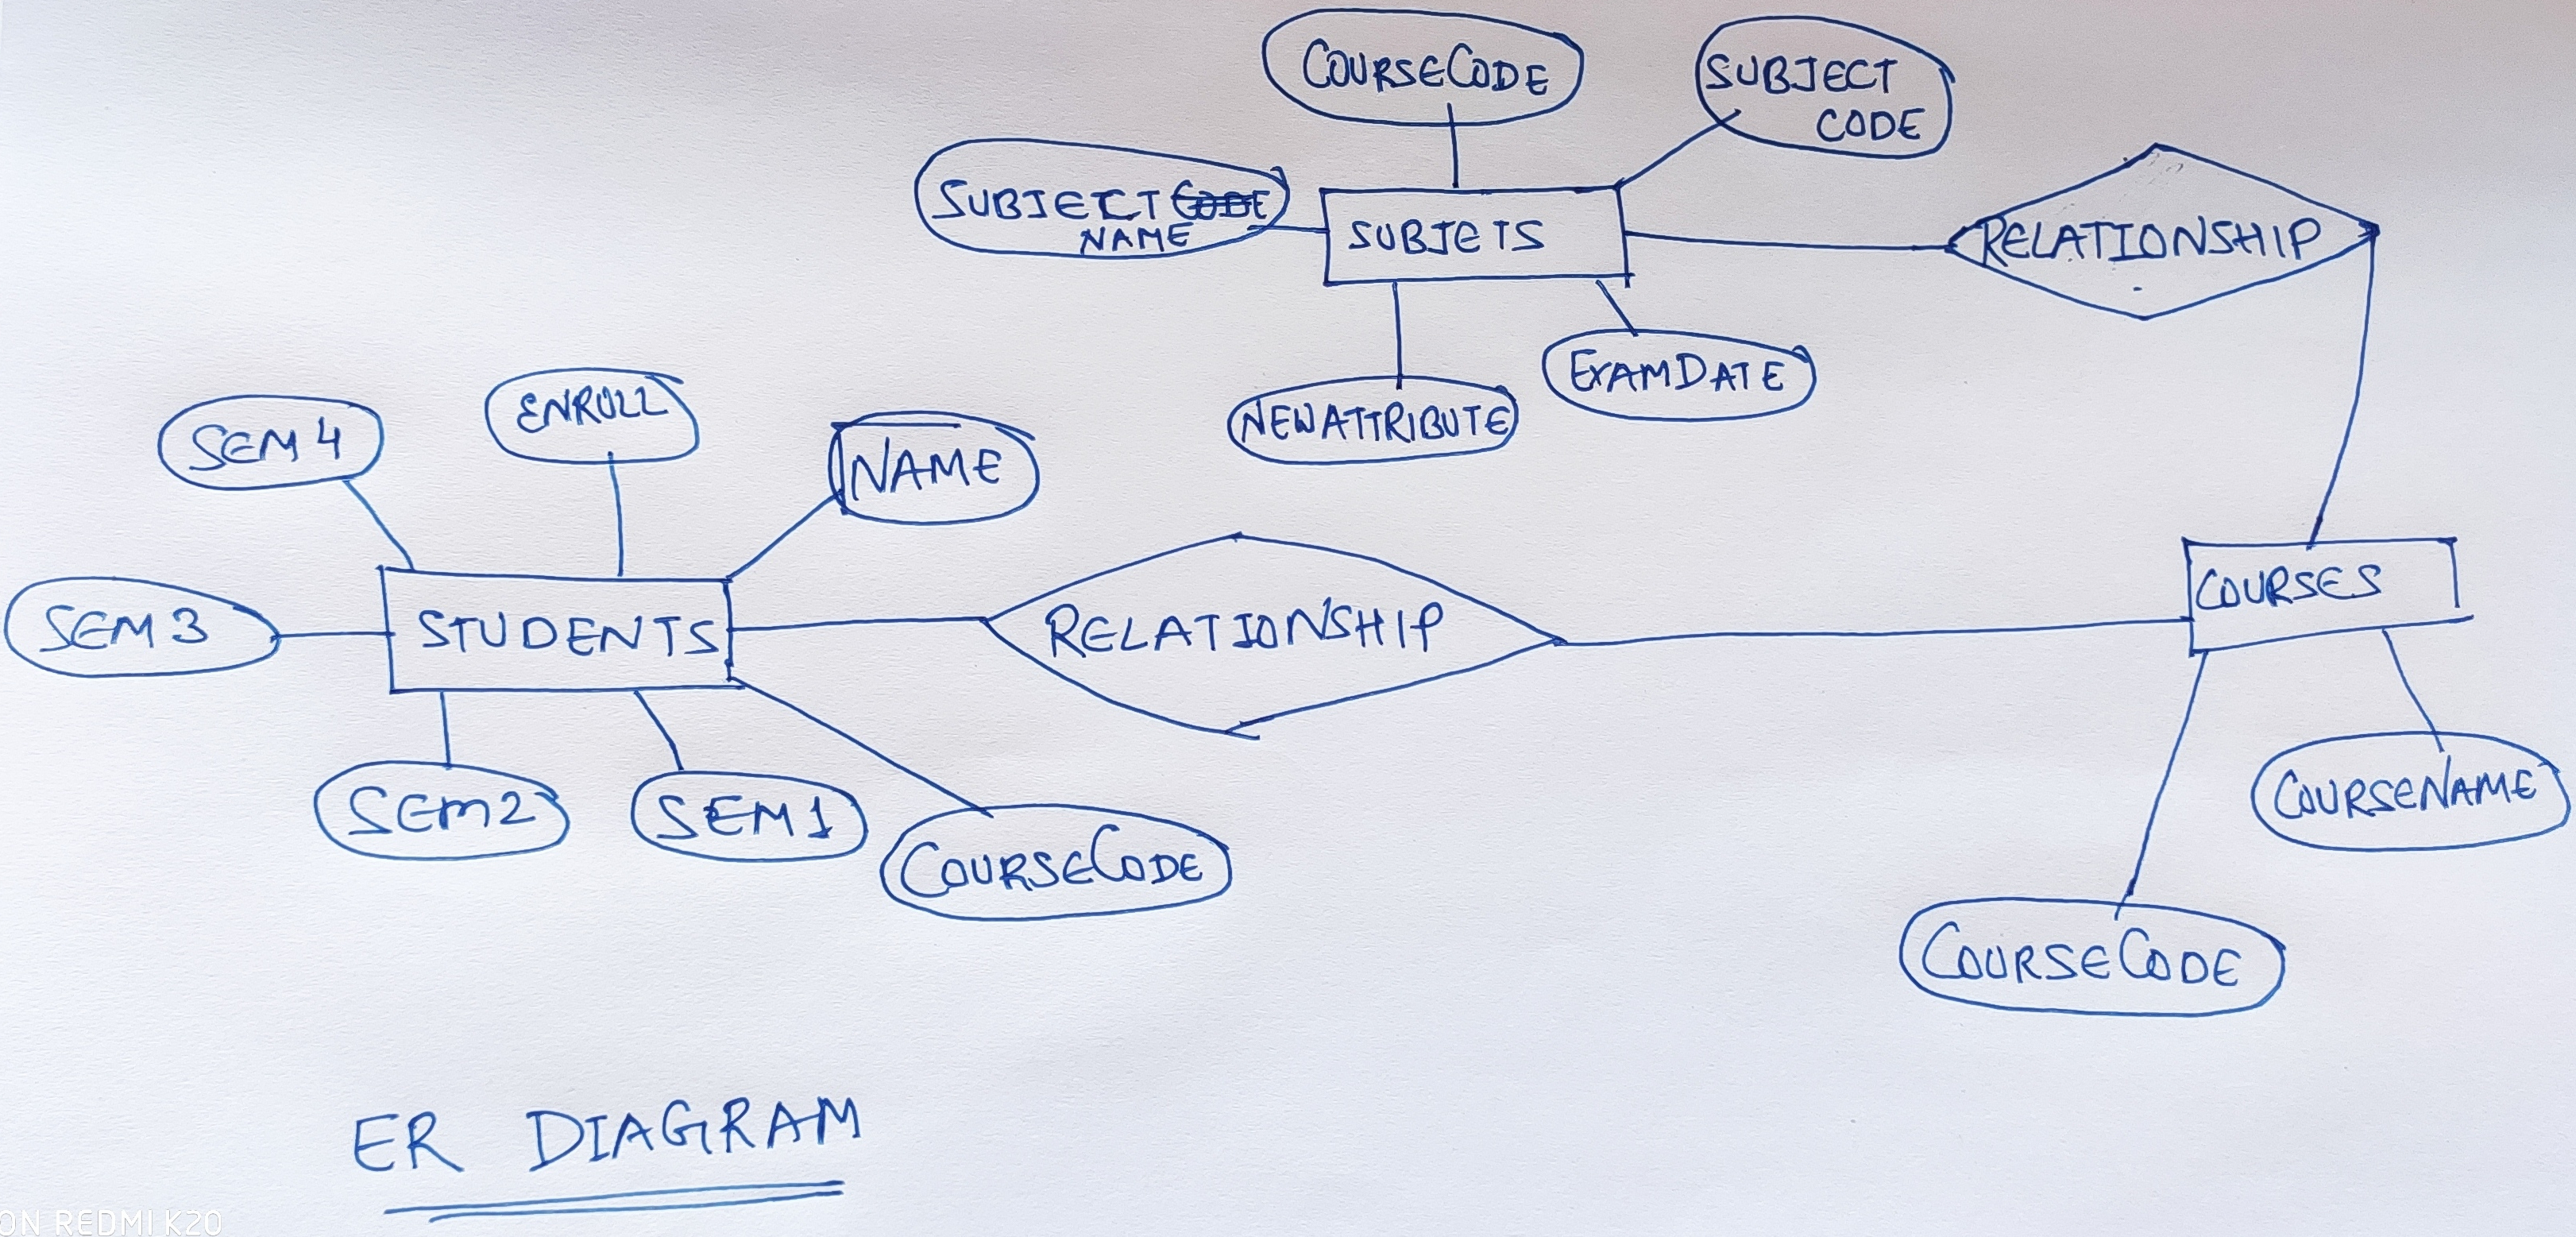 COURSECODE
SUBJECT
CODE
SUBJECT
NAME
SUBJETS
RELATIONSHIP
EXAMDATE
NEWATTRIBUTE
ENROLL
SEM 4
NAME
SEM 3
STUDENTS
RELATIONSHIP
COURSES
SEM2
SEM1
COURSECODE
COURSENAME
COURSECODE
ER DIAGRAM
ON REDMI K20